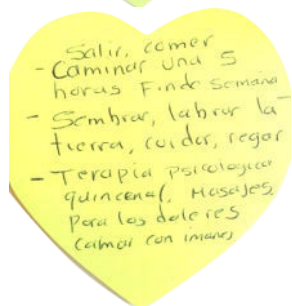 Salir, comer
- Caminar una 5
horas Finde Semana
- Sembrar, labrar la
tierra, cuidar, regar
- Terapia psicologica
quincenal, Masajes
Para los dolores
calmar con imanes